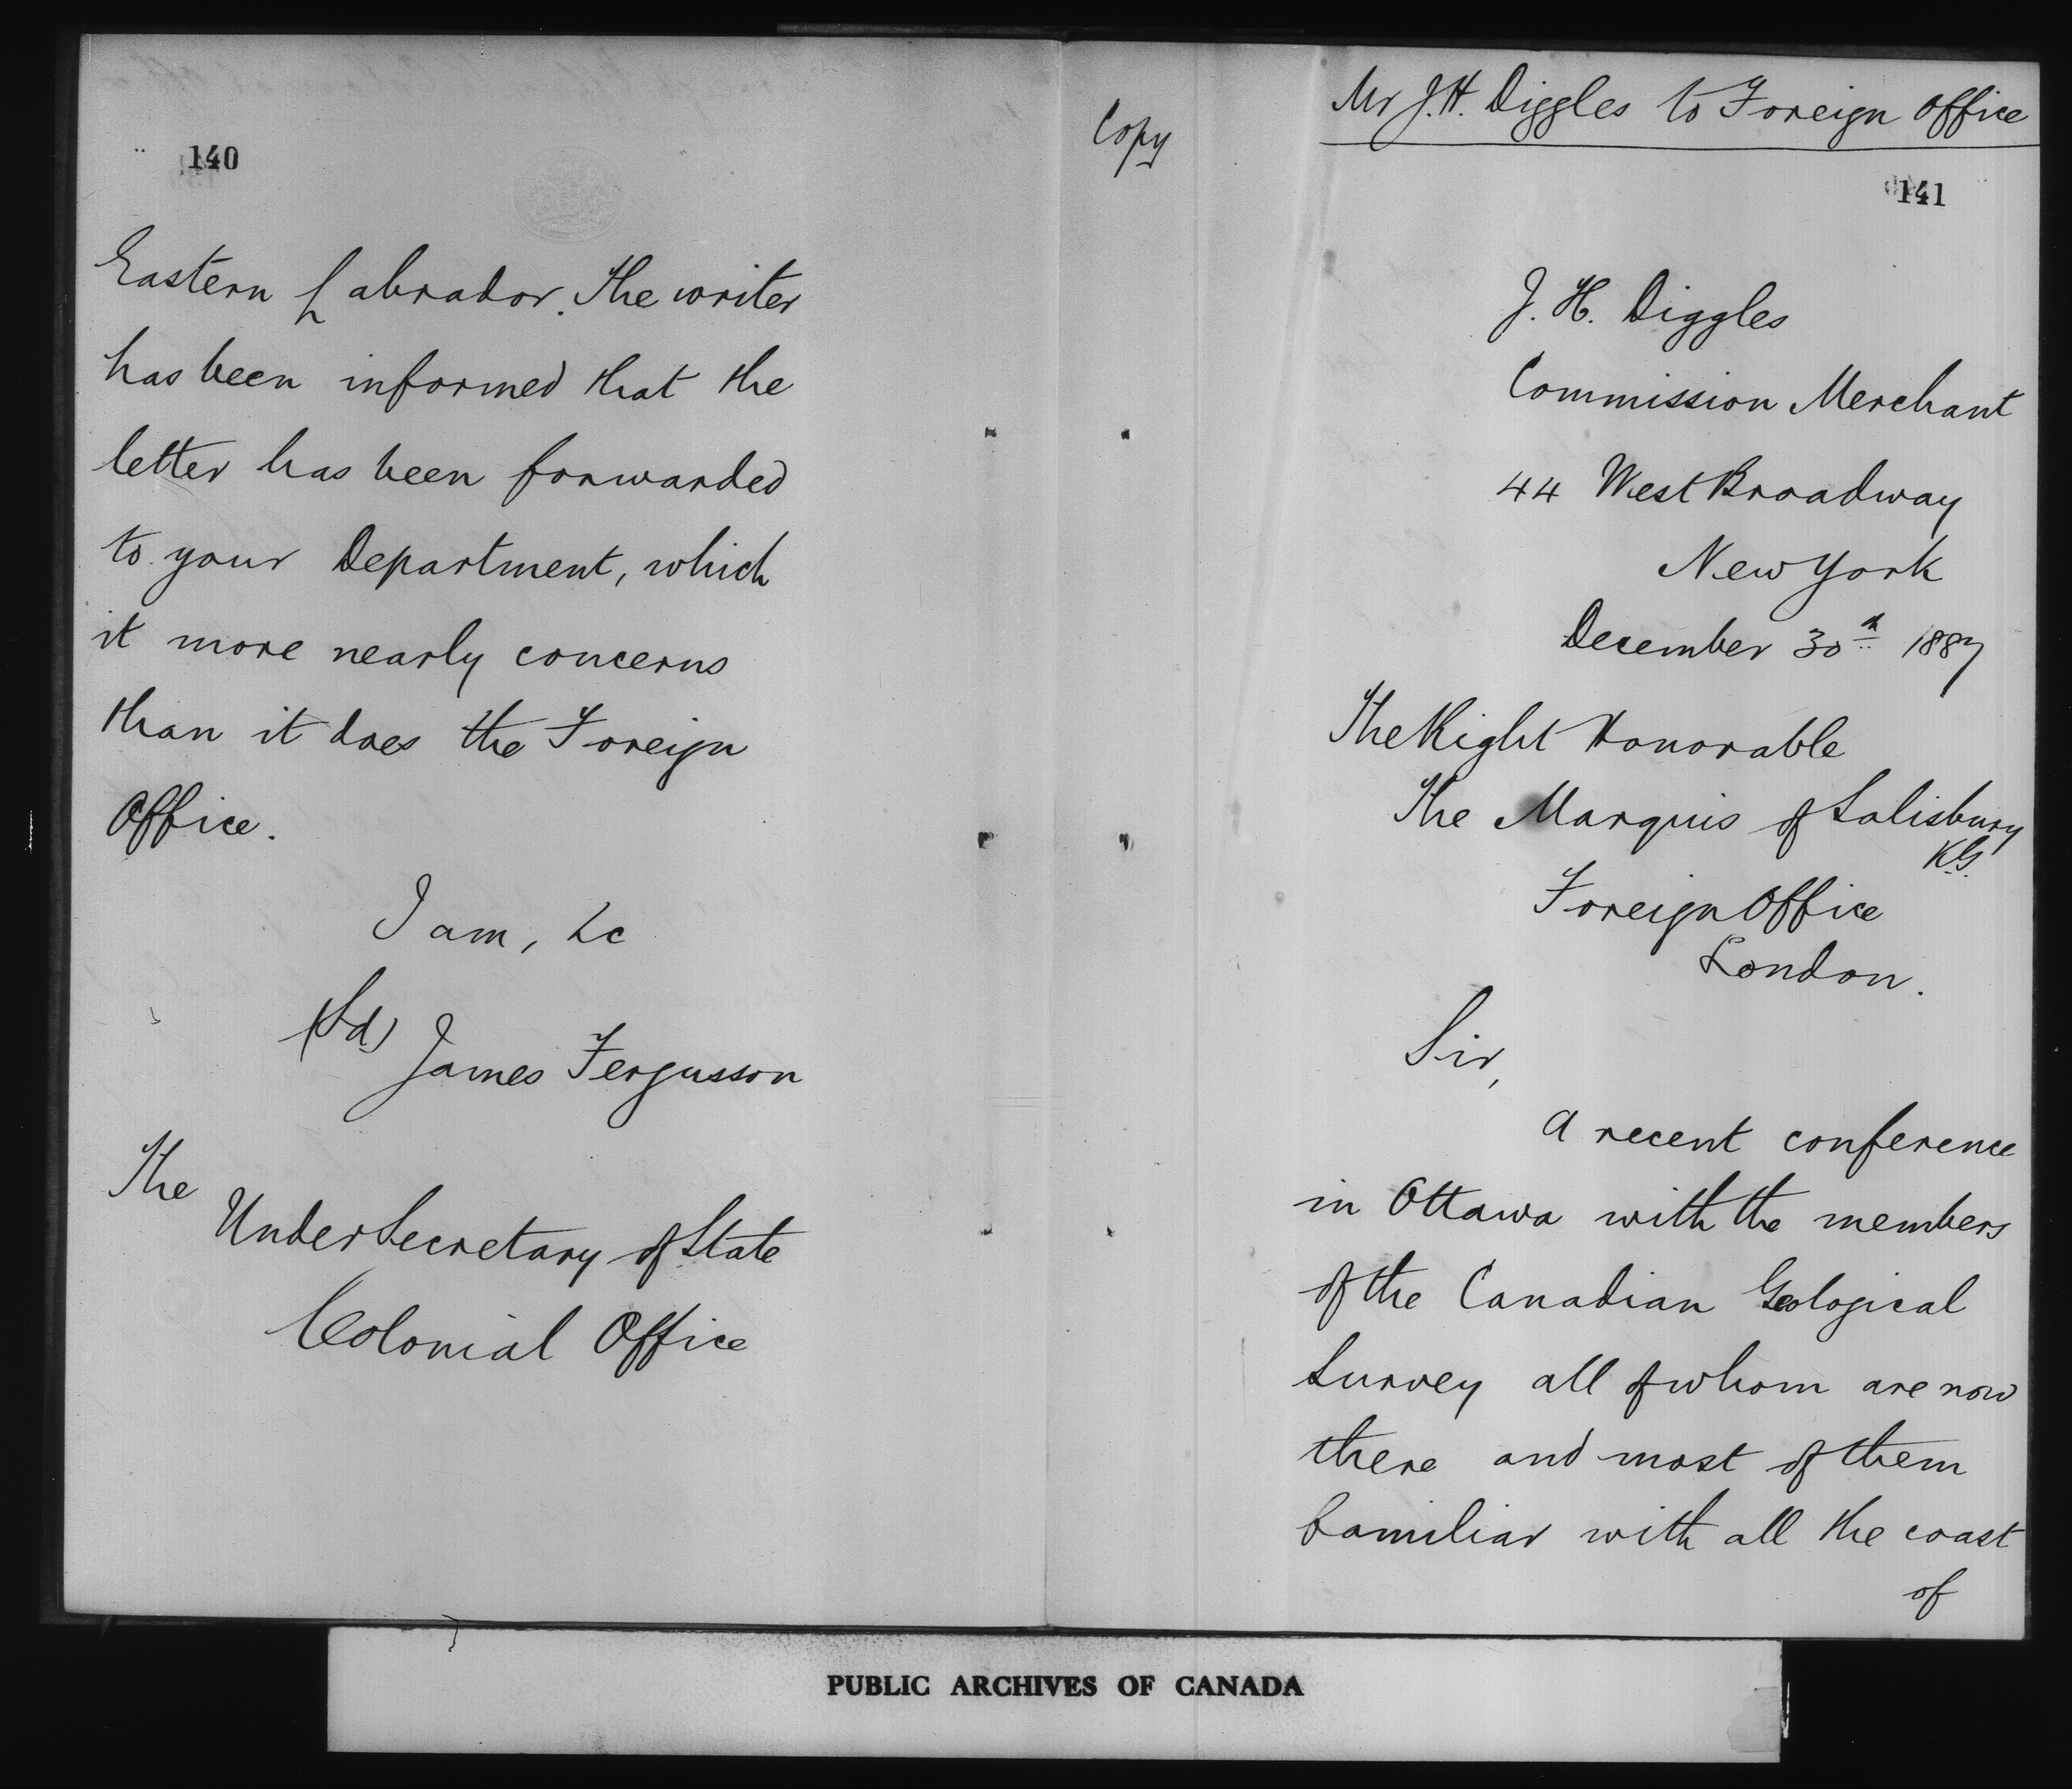 140
Eastern Labrador. The writer
has been informed that the
letter has been forwarded
to your Department, which
it more nearly concerns
than it does the Foreign
Office.
I am, &c
(Sd) James Fergusson
The
Under Secretary of State
Colonial Office
Copy
Mr J.H. Diggles to Foreign Office
141
J. H. Diggles
Commission Merchant
44 West Broadway
New York
December 30th 1887
The Right Honorable
The Marquis of Salisbury
K.G.
Foreign Office
London.
Sir,
A recent conference
in Ottawa with the members
of the Canadian Geological
Survey all of whom are now
there and most of them
familiar with all the coast
of
PUBLIC ARCHIVES OF CANADA